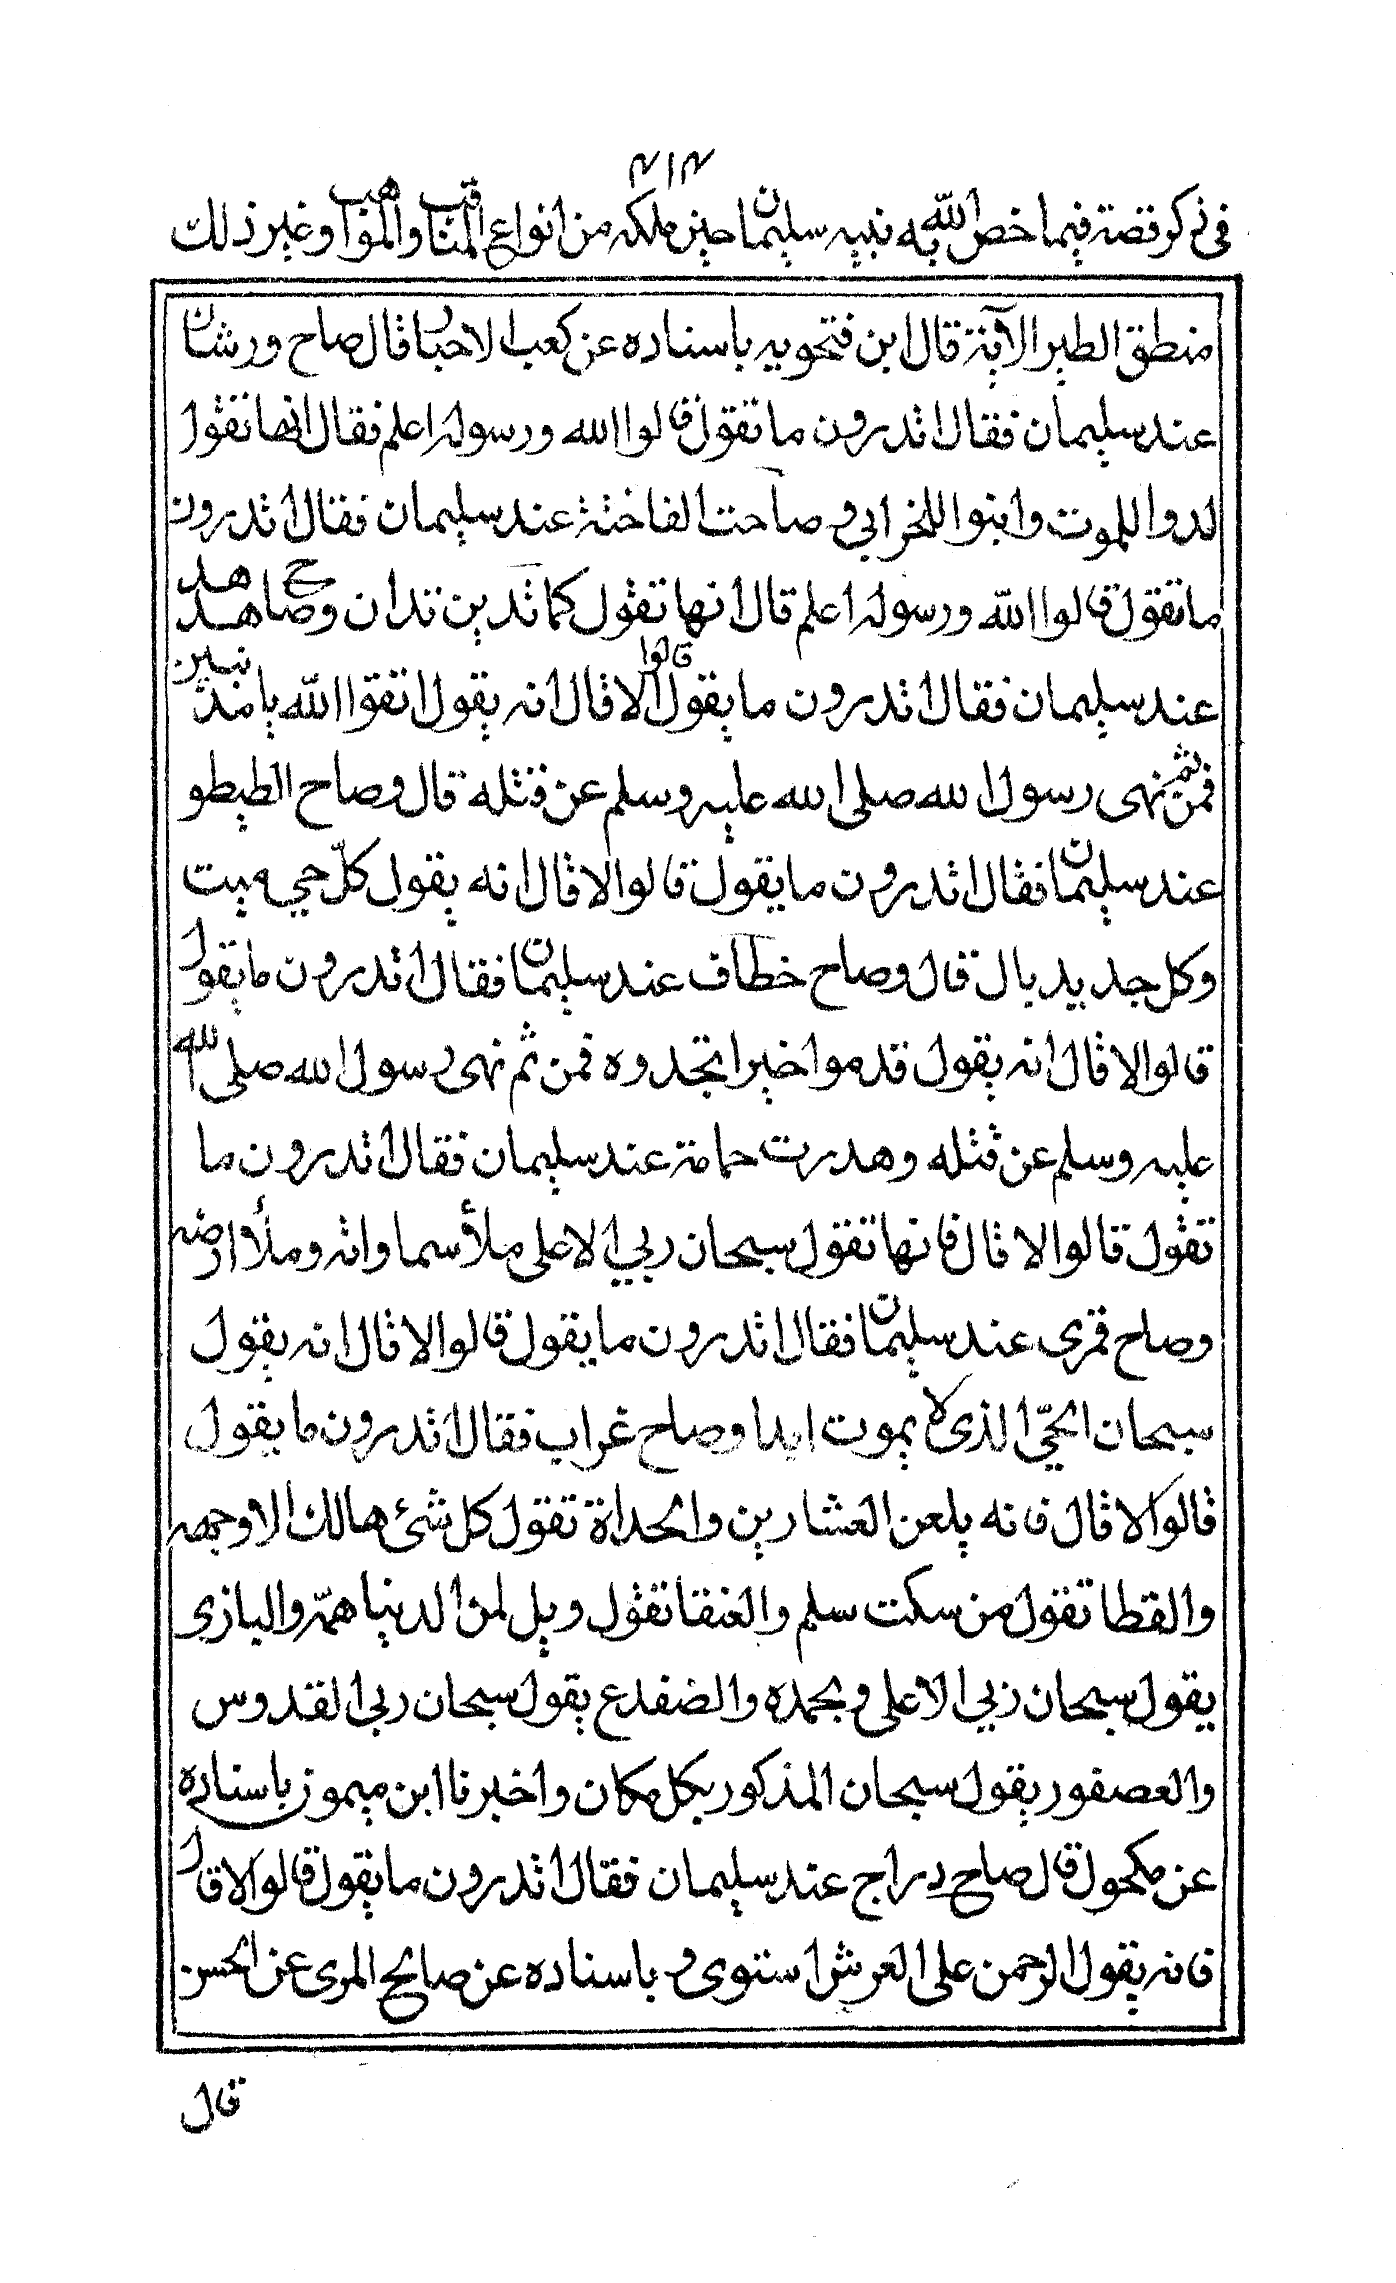 ٤١٤
في ذكر قصة فيما خص الله به نبيه سليمان حين ملكه من انواع المناقب والمواهب وغير ذلك
منطق الطير الآية قال ابن فتحويه باسناده عن كعب الاحبار قال صاح ورشان
عند سليمان فقال اتدرون ما تقول قالوا الله ورسوله اعلم فقال انها تقول
لدوا للموت وابنوا للخراب و صاحت الفاختة عند سليمان فقال اتدرون
ما تقول قالوا الله ورسوله اعلم قال انها تقول كما تدين تدان وصاح هدهد
عند سليمان فقال اتدرون ما يقول قالوا لا قال انه يقول اتقوا الله يا مذنبين
فمن ثم نهى رسول الله صلى الله عليه وسلم عن قتله قال وصاح الطيطو
عند سليمان فقال اتدرون ما يقول قالوا لا قال انه يقول كلّ حي ميت
وكل جديد بال قال وصاح خطاف عند سليمان فقال اتدرون ما يقول
قالوا لا قال انه يقول قدموا خيرا تجدوه فمن ثم نهى رسول الله صلى الله
عليه وسلم عن قتله وهدرت حمامة عند سليمان فقال اتدرون ما
تقول قالوا لا قال فانها تقول سبحان ربي الاعلى ملأ سماواته وملأ ارضه
وصاح قمرى عند سليمان فقال اتدرون ما يقول قالوا لا قال انه يقول
سبحان الحيّ الذى لا يموت ابدا وصاح غراب فقال اتدرون ما يقول
قالوا لا قال فانه يلعن العشارين والحداة تقول كل شئ هالك الا وجهه
والقطا تقول من سكت سلم والعنقا تقول ويل لمن الدنيا همّه والبازى
يقول سبحان ربي الاعلى وبحمده والضفدع يقول سبحان ربي القدوس
والعصفور يقول سبحان المذكور بكل مكان واخبرنا ابن ميمون باسناده
عن مكحول قال صاح دراج عند سليمان فقال اتدرون ما يقول قالوا لا قال
فانه يقول الرحمن على العرش استوى و باسناده عن صالح المرى عن الحسن
قال